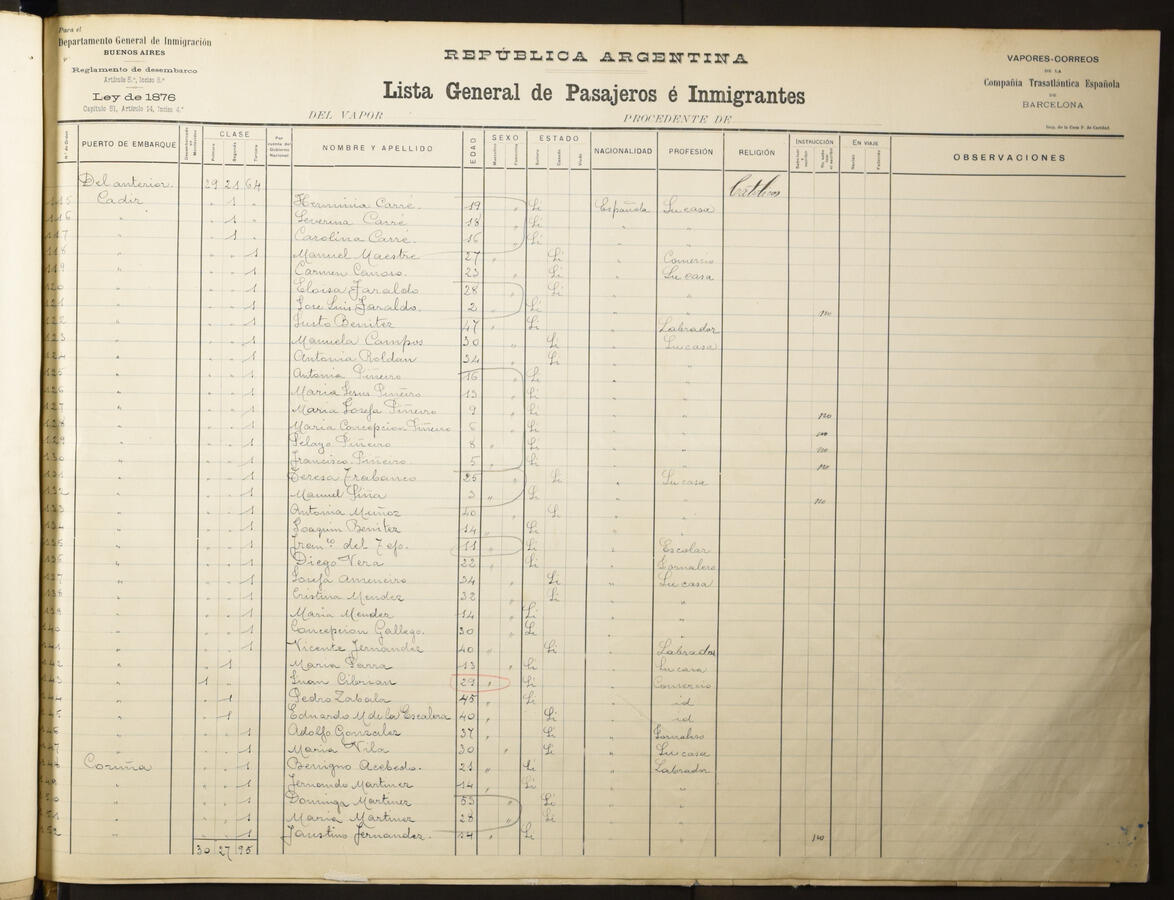 Para el
Departamento General de Inmigración
BUENOS AIRES
Reglamento de desembarco
Artículo 5.º, Inciso 8.º
Ley de 1876
Capítulo 51, Artículo 14, Inciso 4.º
REPÚBLICA ARGENTINA
Lista General de Pasajeros é Inmigrantes
DEL VAPOR PROCEDENTE DE
VAPORES-CORREOS
DE LA
Compañía Trasatlántica Española
DE
BARCELONA
Imp. de la Casa P. de Caridad
N.º de Orden PUERTO DE EMBARQUE CLASE Primera Segunda Tercera Por cuenta del Gobierno Nacional NOMBRE Y APELLIDO EDAD SEXO Masculino Femenino ESTADO Soltero Casado Viudo NACIONALIDAD PROFESIÓN RELIGIÓN INSTRUCCIÓN EN VIAJE OBSERVACIONES
Del anterior. 29 21 64 Católicos
115 Cadiz " 1 " Herminia Carré 19 " Si Española Su casa
116 " " 1 " Severina Carré 18 " Si " "
117 " " 1 " Carolina Carré 16 " Si " "
118 " " " 1 Manuel Maestre 27 " Si " Comercio
119 " " " 1 Carmen Canoso 23 " Si " Su casa
120 " " " 1 Eloisa Faraldo 28 " Si " "
121 " " " 1 Jose Luis Faraldo 2 " Si " " no
122 " " " 1 Justo Benitez 47 " Si " Labrador
123 " " " 1 Manuela Campos 30 " Si " Su casa
124 " " " 1 Antonia Roldan 34 " Si " "
125 " " " 1 Antonia Piñeiro 16 " Si " "
126 " " " 1 Maria Jesus Piñeiro 13 " Si " "
127 " " " 1 Maria Josefa Piñeiro 9 " Si " " no
128 " " " 1 Maria Concepcion Piñeiro 6 " Si " " no
129 " " " 1 Pelayo Piñeiro 8 " Si " " no
130 " " " 1 Francisco Piñeiro 5 " Si " " no
131 " " " 1 Teresa Trabanco 25 " Si " Su casa
132 " " " 1 Manuel Piña 3 " Si " " no
133 " " " 1 Antonia Muñoz 40 " Si " "
134 " " " 1 Joaquin Benitez 14 " Si " "
135 " " " 1 Fran.co del 11 " Si " Escolar
136 " " " 1 Diego Vera 22 " Si " Jornalero
137 " " " 1 Josefa Ameneiro 34 " Si " Su casa
138 " " " 1 Cristina Mendez 32 " Si " "
139 " " " 1 Maria Mendez 14 " Si " "
140 " " " 1 Concepcion Gallego 30 " Si " "
141 " " " 1 Vicente Fernandez 40 " Si " Labrador
142 " " 1 Maria Parra 13 " Si " Su casa
143 " 1 " Juan Cibrian 29 " Si " Comercio
144 " " 1 Pedro Zabala 45 " Si " id
145 " " 1 Eduardo M de la Escalera 40 " Si " id
146 " " " 1 Adolfo Gonzalez 37 " Si " Jornalero
147 " " " 1 Maria Vila 30 " Si " Su casa
148 Coruña " " 1 Benigno Acebedo 21 " Si " Labrador
149 " " " 1 Fernando Martinez 14 " Si " "
150 " " " 1 Dominga Martinez 53 " Si " "
151 " " " 1 Maria Martinez 28 " Si " "
152 " " " 1 Faustino Fernandez 14 " Si " " no
30 27 95